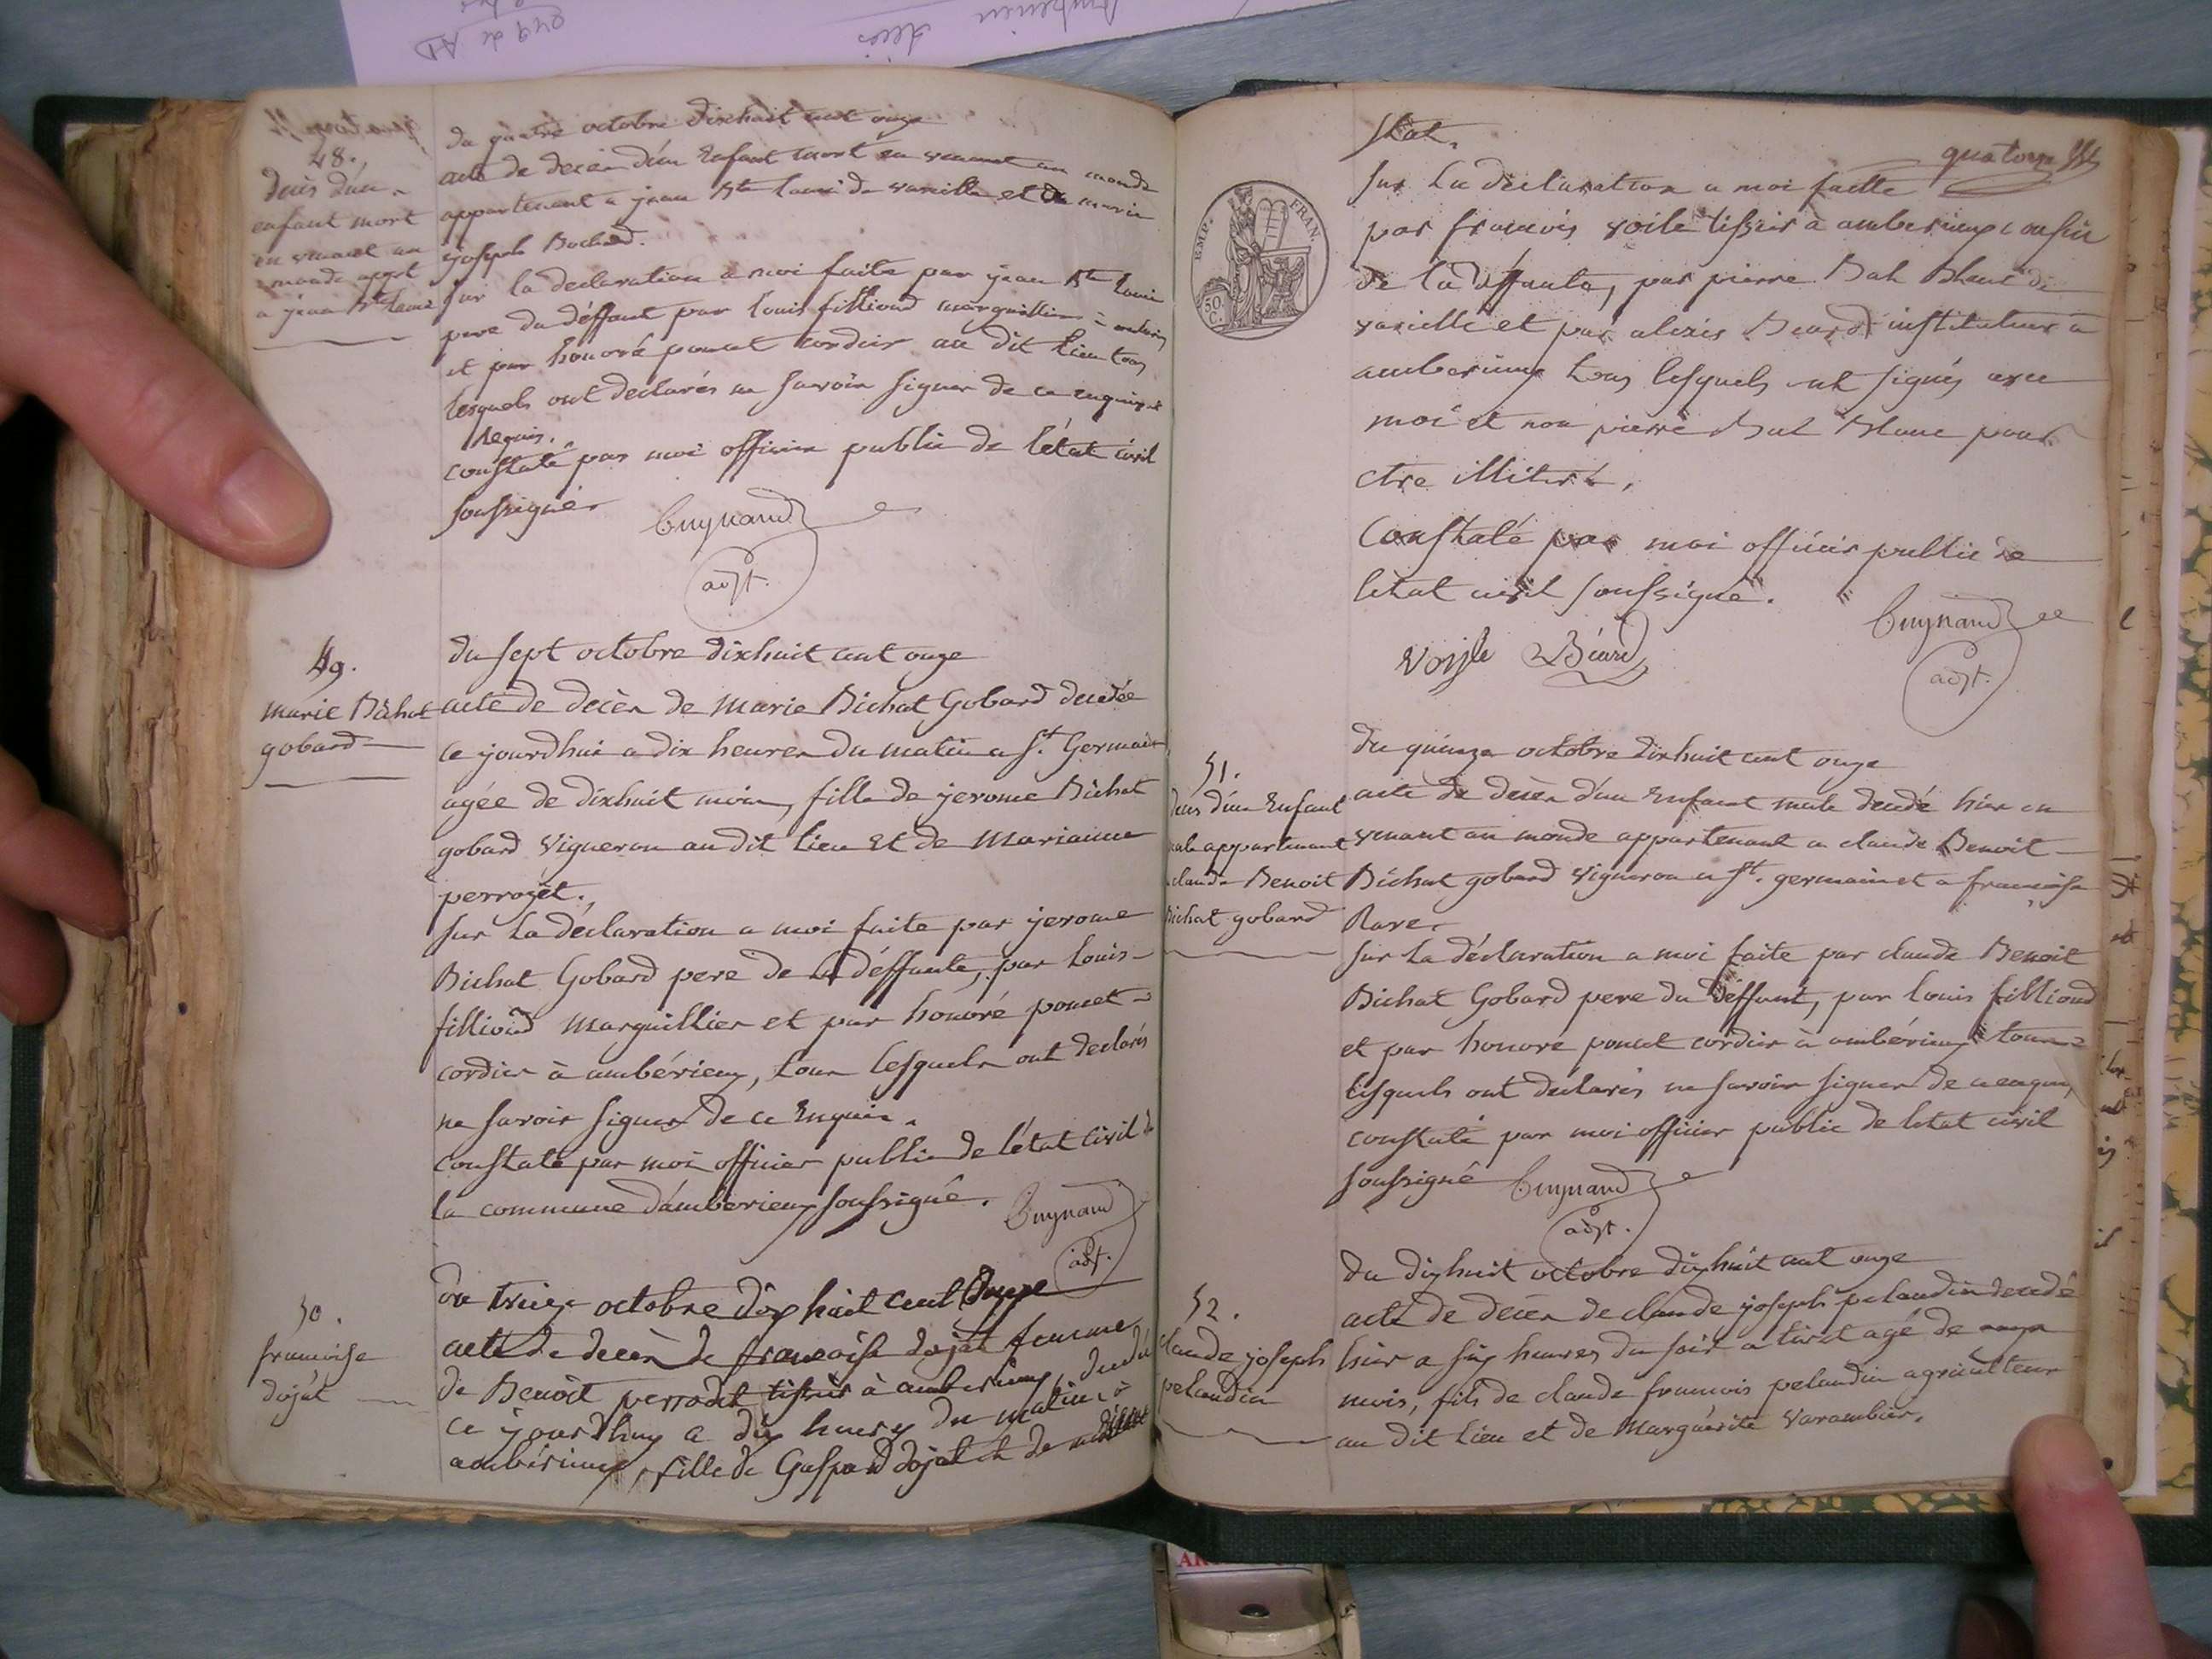 48.
décès d'un
enfant mort
en venant au
monde appt
a jean Bte Louis
du quatre octobre dixhuit cent onze
acte de decès d'un Enfant mort en venant au monde
appartenant a jean Bte Louis de vareille et de marie
joseph Bochard.
sur la declaration a moi faite par jean Bte Louis
pere du déffunt par louis fillioud marguillier à
et par honoré poncet cordier au dit lieu tous
lesquels ont déclarés ne savoir signer de ce enquis et
Requis.
constaté par moi officier public de l'état civil
soussigné
Cuynaud
adjt.
49.
marie Bichat
gobard
du sept octobre dixhuit cent onze
acte de décès de Marie Bichat Gobard decedée
ce jourdhui a dix heures du matin a St. Germain
agée de dixhuit mois, fille de jerome Bichat
gobard vigneron au dit lieu et de Marianne
perrozet.
sur la déclaration a moi faite par jerome
Bichat Gobard pere de la déffunte, par louis
fillioud marguillier et par honoré poncet
cordier à ambérieux, tous lesquels ont declarés
ne savoir signer de ce Enquis.
constaté par moi officier public de l'état civil de
la commune d'ambérieux soussigné.
Cuynaud
adjt.
50.
francoise
dojat
du treize octobre dix huit cent onze
acte de decès de francoise dojat femme
de Benoit perrodet tissier à amberieux, decedé
ce jourdhuy a dix heures du matin à
ambérieux, fille de Gaspard dojat et de
quatorze
sur la déclaration a moi faitte
par francois voile tissier à amberieux cousin
de la déffunte, par pierre Bal Blanc de
vareille et par alexis Beard instituteur a
amberieux tous lesquels ont signés avec
moi et non pierre Bal Blanc pour
etre illiteré,
Constaté par moi officier public de
letat civil soussigné.
Cuynaud
adjt.
Voisle Béard
51.
décès d'un Enfant
male appartenant
claude Benoit
Bichat gobard
du quinze octobre dixhuit cent onze
acte de decès d'un Enfant male decedé hier en
venant au monde appartenant a claude Benoit
Bichat gobard vigneron a St. germain et a francoise
Rave.
sur la déclaration a moi faite par claude Benoit
Bichat Gobard pere du déffunt, par louis fillioud
et par honoré poncet cordier à ambérieux tous
lesquels ont déclarés ne savoir signer de ce enquis,
constaté par moi officier public de letat civil
soussigné
Cuynaud
adjt.
52.
claude joseph
pelaudin
du dixhuit octobre dixhuit cent onze
acte de decès de claude joseph pelaudin decedé
hier a six heures du soir a tiret agé de onze
mois, fils de claude francois pelaudin agriculteur
au dit lieu et de Marguerite Varambier.
EMP. FRAN.
50 C.